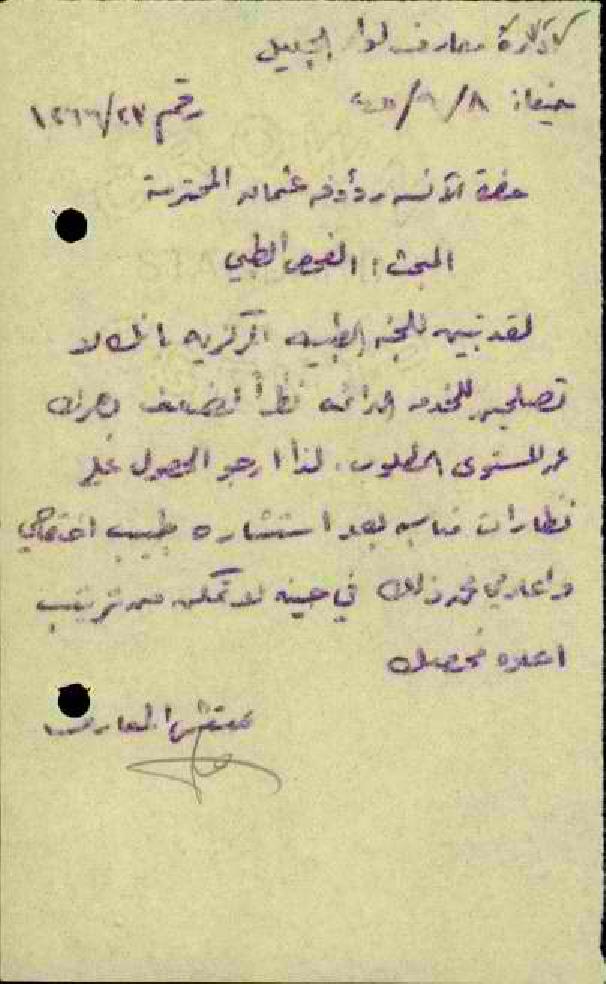 إدارة معارف لواء الجليل
حيفا: ٨/٩/ رقم ١٢٦٦/٢٣
حضرة الآنسه عثمان المحترمة
المبحث: الفحص الطبي
لقد تبين للجنه الطبيه المركزيه بانك لا
تصلحين للخدمه الدائمه نظراً لضعف بصرك
عن المستوى المطلوب. لذا ارجو الحصول على
نظارات مناسبه بعد استشاره طبيب اختصاصي
واعلامي عن ذلك في حينه لاتمكن من ترتيب
اعاده فحصك
مفتش المعارف